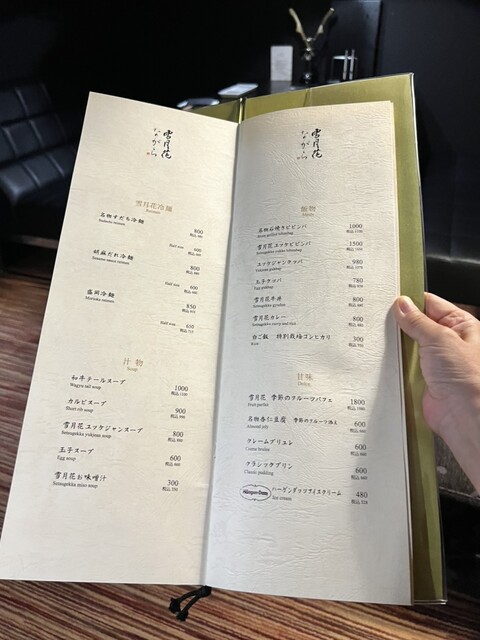 雪月花
ながら
雪月花冷麺
Reimen
名物すだち冷麺 800
Sudachi reimen 税込 880
Half size 600
税込 660
胡麻だれ冷麺 800
Sesame sauce reimen 税込 880
Half size 600
税込 660
盛岡冷麺 850
Morioka reimen 税込 935
Half size 650
税込 715
汁物
Soup
和牛テールスープ 1000
Wagyu tail soup 税込 1100
カルビスープ 900
Short rib soup 税込 990
雪月花ユッケジャンスープ 800
Setsugekka yukjean soup 税込 880
玉子スープ 600
Egg soup 税込 660
雪月花お味噌汁 300
Setsugekka miso soup 税込 330
雪月花
ながら
飯物
Meals
名物石焼きビビンバ 1000
Stone grilled bibimbap 税込 1100
雪月花ユッケビビンバ 1500
Setsugekka yukke bibimbap 税込 1650
ユッケジャンクッパ 980
Yukjean gukbap 税込 1078
玉子クッパ 780
Egg gukbap 税込 858
雪月花牛丼 800
Setsugekka gyudon 税込 880
雪月花カレー 800
Setsugekka curry and rice 税込 880
白ご飯 特別栽培コシヒカリ 300
Rice 税込 330
甘味
Dolce
雪月花 季節のフルーツパフェ 1800
Fruit parfait 税込 1980
名物杏仁豆腐 季節のフルーツ添え 600
Almond jelly 税込 660
クレームブリュレ 600
Creme brulee 税込 660
クラシックプリン 600
Classic pudding 税込 660
Häagen-Dazs ハーゲンダッツアイスクリーム 480
Ice cream 税込 528